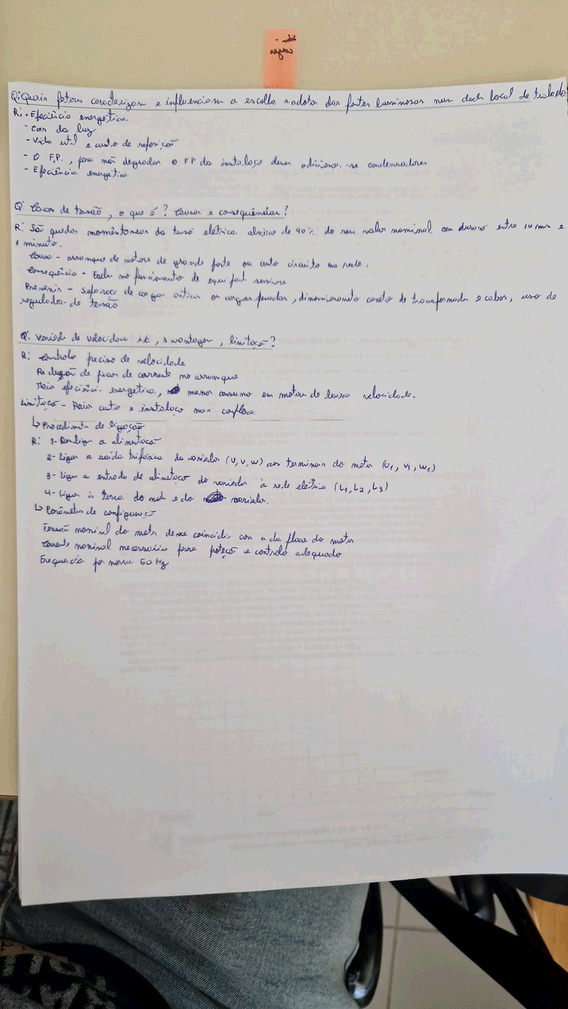 Q: Quais fatores caracterizam e influenciam a escolha a adotar das fontes luminosas num dado local de trabalho
R: - Eficiência energética
- Cor da luz
- Vida útil e custo de reposição
- O F.P., para não degradar o FP da instalação deve adicionar-se condensadores
- Eficiência energética
Q: Cavas de tensão, o que é? Causas e consequências?
R: São quedas momentâneas da tensão elétrica abaixo de 90% do seu valor nominal com duração entre 10 ms e
1 minuto.
Causa - arranque de motores de grande porte ou curto circuito na rede.
Consequência - Falha no funcionamento de equip
Prevenir - Separação de cargas críticas ou cargas pesadas, dimensionamento correto de transformador e cabos, uso de
regulador de tensão
Q: Variador de velocidade, 3 vantagens, limitação?
R: Controlo preciso de velocidade
Redução de picos de corrente no arranque
Mais eficiência energética, menor consumo em motores de baixa velocidade.
Limitação - Maior custo e instalação mais complexa
↳ Procedimento de ligação
R: 1- Desligar a alimentação
2- Ligar a saída trifásica do variador (U, V, W) aos terminais do motor (U1, V1, W1)
3- Ligar a entrada de alimentação do variador à rede elétrica (L1, L2, L3)
4- Ligar à terra do motor e do variador.
↳ Parâmetros de configuração
Tensão nominal do motor deve coincidir com a da placa do motor
Corrente nominal necessária para proteção e controlo adequado
Frequência por norma 50 Hz